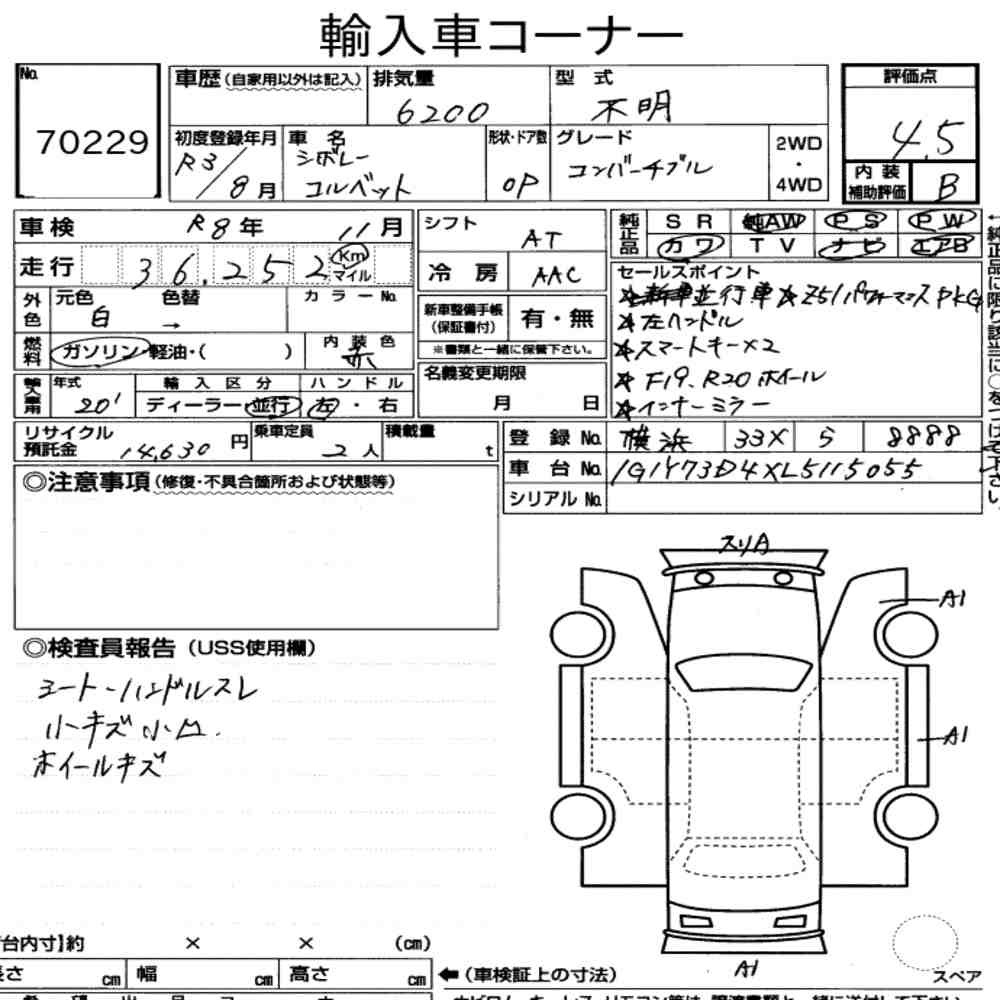 輸入車コーナー
No.
70229
車歴(自家用以外は記入)
排気量
6200
型式
不明
評価点
4.5
初度登録年月
R3/8月
車名
シボレー
コルベット
形状・ドア数
OP
グレード
コンバーチブル
2WD
・
4WD
内装
補助評価
B
車検 R8年 11月
シフト AT
純正品
SR 純AW PS PW
カワ TV ナビ エアB
走行 36,252 Km
マイル
冷房 AAC
セールスポイント
★新車並行車★Z51パフォーマンスPKG
★左ハンドル
★スマートキー×2
★F19.R20ホイール
★インナーミラー
外色
元色 色替
白 →
カラーNo.
新車整備手帳
(保証書付)
有・無
※書類と一緒に保管下さい。
燃料
ガソリン・軽油・( )
内装色
赤
名義変更期限
月 日
輸入車用
年式
20'
輸入区分
ディーラー・並行
ハンドル
左・右
リサイクル
預託金 14,630円
乗車定員
2人
積載量
t
登録No. 横浜 33X ら 8888
車台No. 1G1Y73D4XL5115055
シリアルNo.
←純正品に限り該当に○をつけて下さい。
◎注意事項(修復・不具合箇所および状態等)
スリA
A1
A1
A1
◎検査員報告(USS使用欄)
シート・ハンドルスレ
小キズ小凹.
ホイールキズ
台内寸】約 × × (cm)
長さ cm 幅 cm 高さ cm
←(車検証上の寸法)
スペア